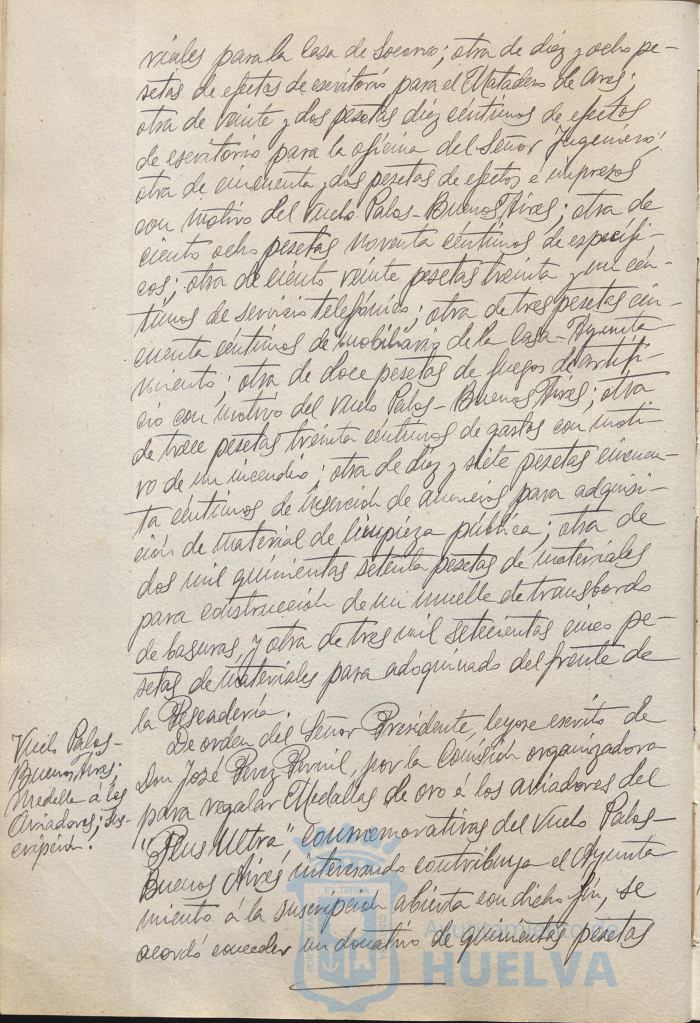 riales para la Casa de Socorro; otra de diez y ocho pe-
setas de efectos de escritorio para el Matadero de Aves;
otra de veinte y dos pesetas diez céntimos de efectos
de escritorio para la oficina del Señor Ingeniero;
otra de cincuenta y dos pesetas de efectos e impresos
con motivo del Vuelo Palos-Buenos Aires; otra de
ciento ocho pesetas noventa céntimos de específi-
cos; otra de ciento veinte pesetas treinta y un cén-
timos de servicio telefónico; otra de tres pesetas cin-
cuenta céntimos de mobiliario de la Casa-Ayunta-
miento; otra de doce pesetas de fuegos de artifi-
cio con motivo del Vuelo Palos-Buenos Aires; otra
de trece pesetas treinta céntimos de gastos con moti-
vo de un incendio; otra de diez y siete pesetas cincuen-
ta céntimos de inserción de anuncios para adquisi-
ción de material de limpieza pública; otra de
dos mil quinientas setenta pesetas de materiales
para construcción de un muelle de transbordo
de basuras, y otra de tres mil setecientas cinco pe-
setas de materiales para adoquinado del frente de
la Pescadería.
Vuelo Palos-
Buenos Aires;
Medalla á los
Aviadores; sus-
cripción.
De orden del Señor Presidente, leyose escrito de
Don José Perez Pernil, por la Comisión organizadora
para regalar Medallas de oro á los aviadores del
"Plus Ultra", conmemorativas del Vuelo Palos-
Buenos Aires, interesando contribuya el Ayunta-
miento á la suscripción abierta con dicho fin, se
acordó conceder un donativo de quinientas pesetas
Ayuntamiento de
HUELVA